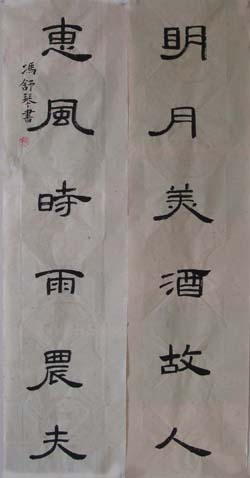 明月美酒故人
惠風時雨農夫
馮舒琴書